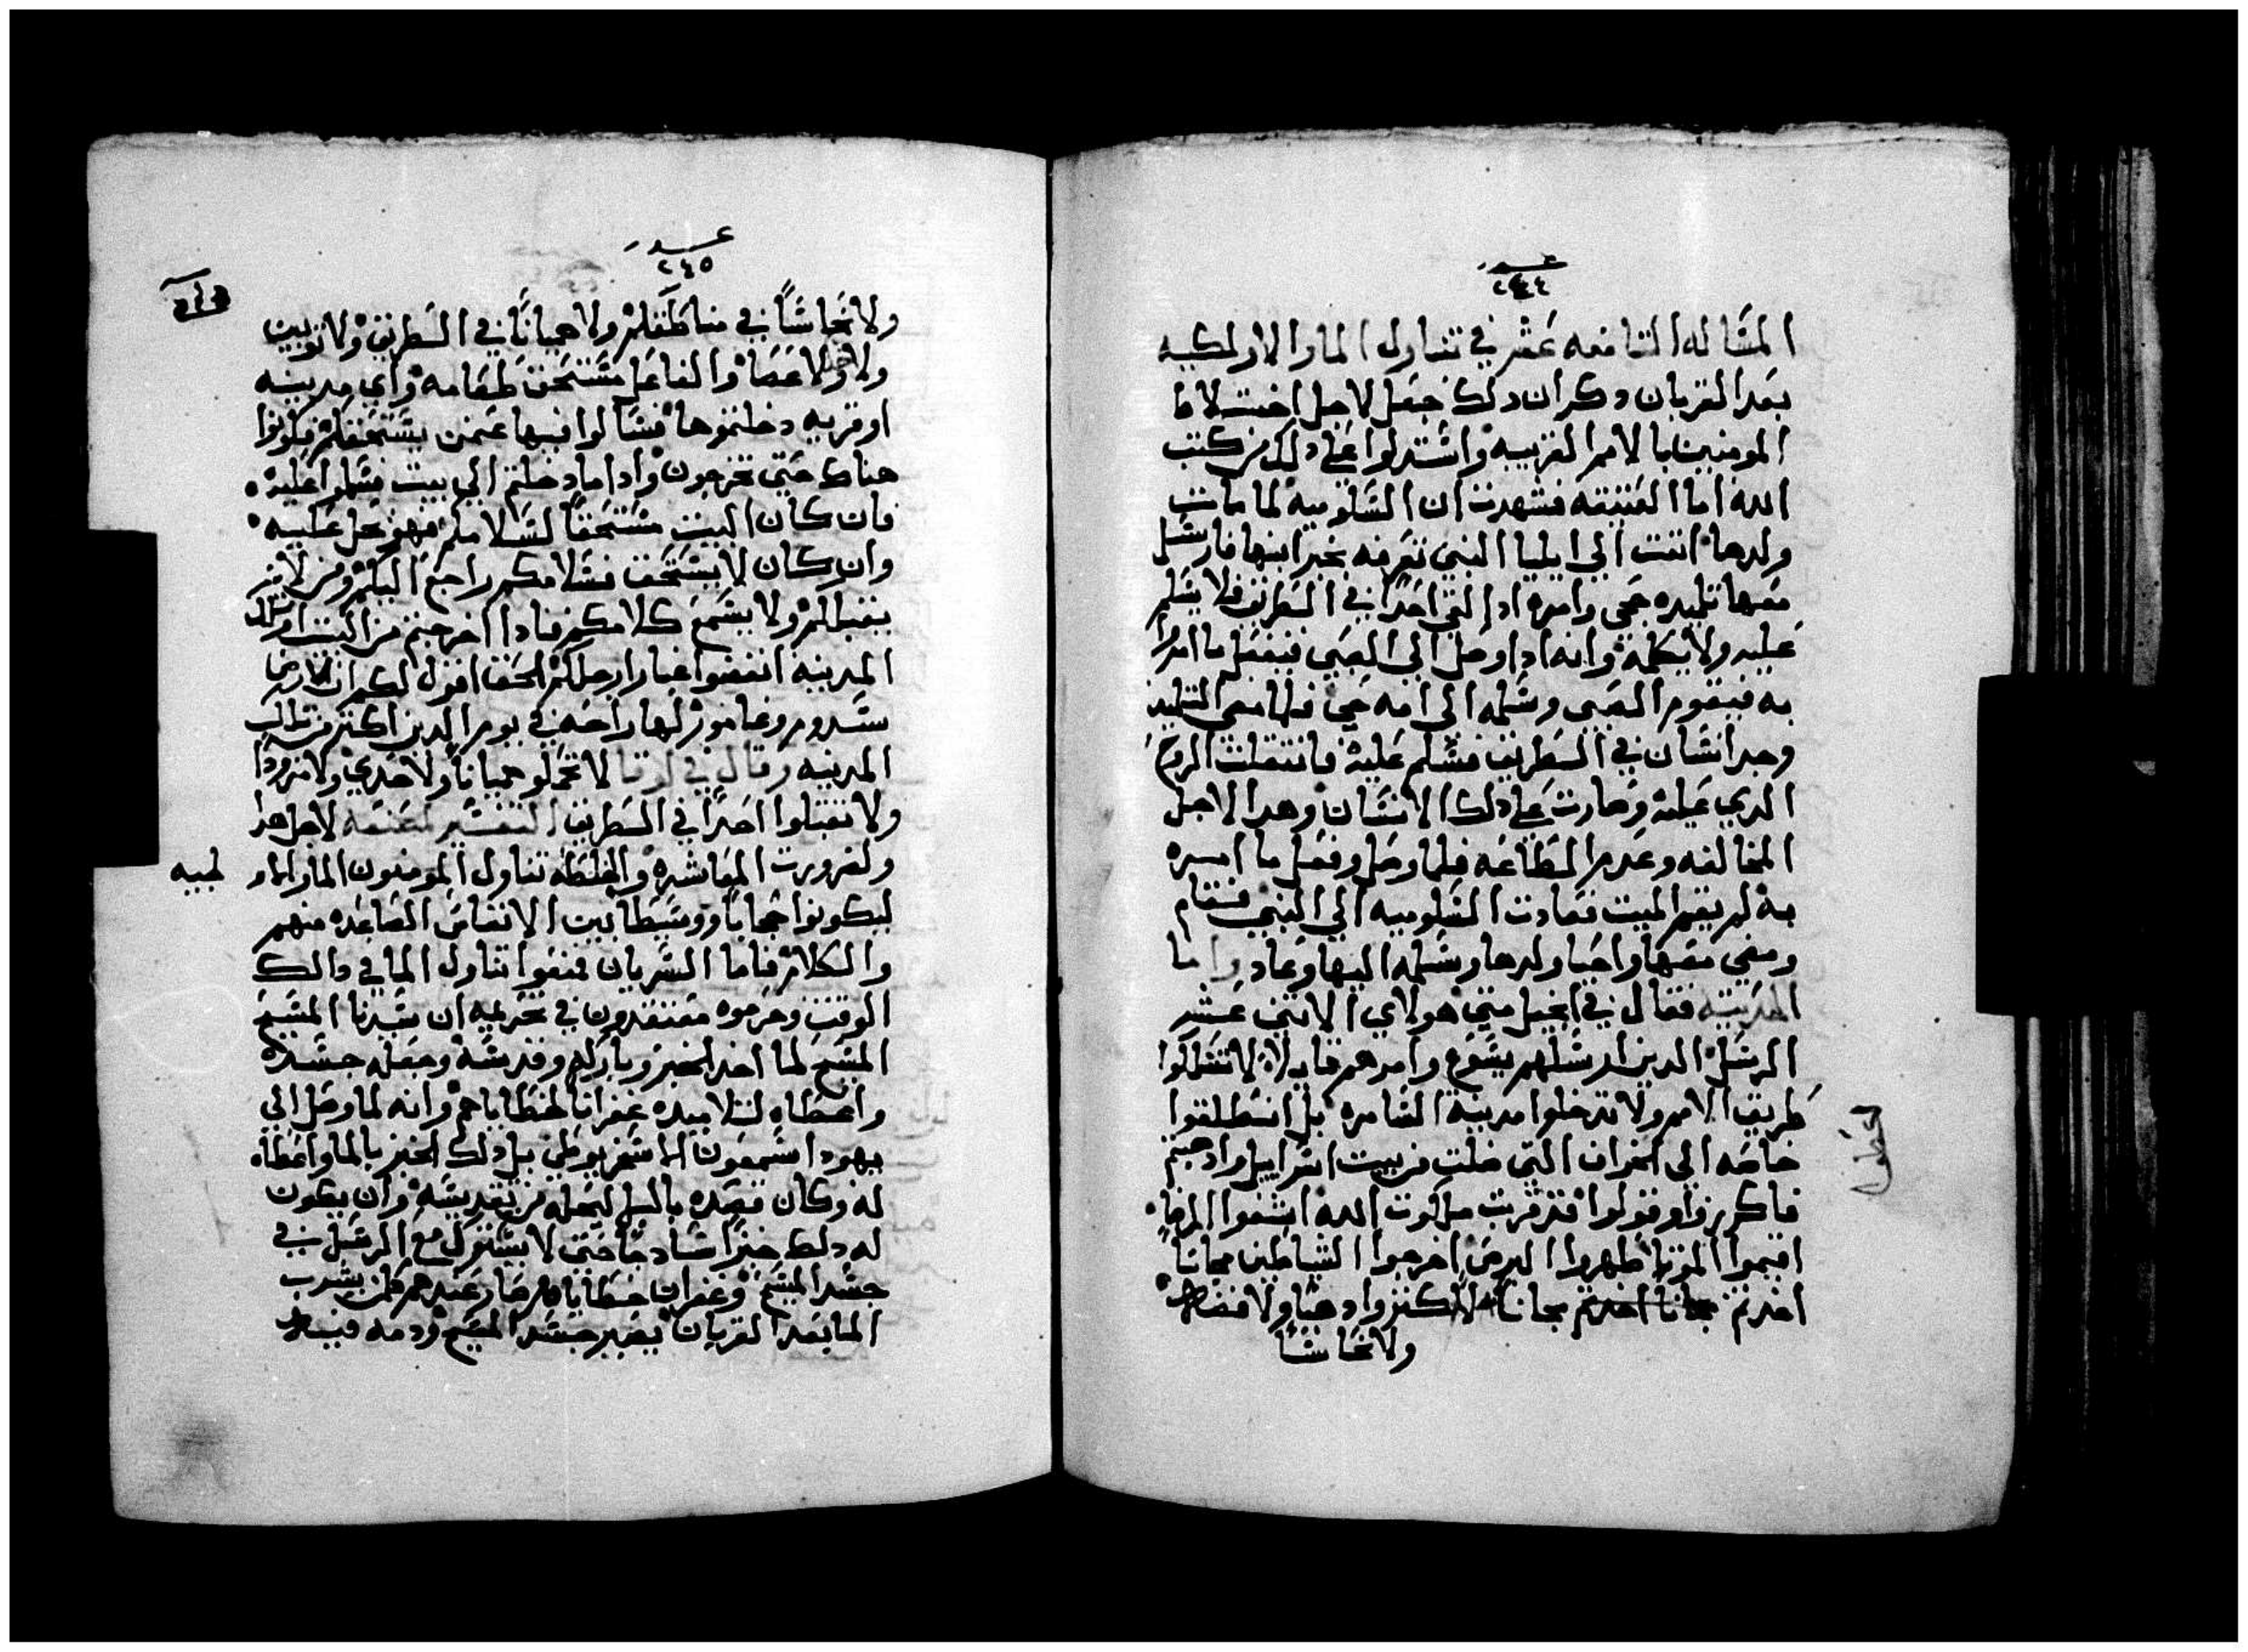 عدد
٢٤٤
المساله التاسعه عشر في تناول الماء الاردلكيه
بعد القربان وكران دلك جعل لاجل اختلاط
المومنين بالامم الغريبه واستدلوا علي دلك من كتب
الله اما العتيقه فشهدت ان الشلوميه لما مات
ولدها اتت الي ايليا النبي تعرفه بخبر ابنها فارسل
معها تلميده جحي وامره ادا لقي احدًا في الطريق فلا يسلم
عليه ولا يكلمه وانه ادا وصل الي الصبي فيفعل ما امره
به فيقوم الصبي وسلمه الي امه حي فلما مضي التلميد
وجد انسان في الطريق فسلم عليه فانتقلت الروح
الدي عليه وصارت علي دلك الانسان وهدا لاجل
المخالفه وعدم الطاعه فلما وصل وفعل ما امره
به لم يقم الميت فعادت الشلوميه الي النبي فقام
ومضي معها واحيا ولدها وسلمه اليها وعاد واما
الحديثه فقال في انجيل متي هولاي الاتني عشر
الرسل الدين ارسلهم يسوع وامرهم قايلا لا تسلكوا
طريق الامم ولا تدخلوا مدينة السامره بل انطلقوا
خاصه الي الخراف التي ضلت من بيت اسراييل وادا جيتم
فاكرزوا وقولوا قد قربت ملكوت الله اشفوا المرضا
اقيموا الموتا طهروا البرص اخرجوا الشياطين مجانا
اخدتم مجانا اخدتم مجاناً لا تكنزوا دهبًا ولا فضه
ولا نحاسًا
عدد
٢٤٥
ولا نحاسًا في مناطقكم ولا هميانًا في الطريق ولا توبين
ولا ولا عصا والفاعل مستحق طعامه واي مدينه
او قريه دخلتموها فسالوا فيها عمن يستحقكم فكونوا
هناك حتي تخرجون وادا ما دخلتم الي بيت فسلموا عليه
فان كان البيت مستحقاً لسلامكم فهو يحل عليه
وان كان لا يستحق فسلامكم راجع اليكم ومن لا
يقبلكم ولا يسمع كلامكم فادا اخرجتم من البيت او تلك
المدينه انفضوا غبار ارجلكم الحق اقول لكم ان لارض
سدوم وغامور لها راحه في يوم الدين اكتر من تلك
المدينه وقال في لوقا لا تحملو هميانا ولا حدي ولا مزودا
ولا تقبلوا احدًا في الطريق التفسير لاجل هدا
ولضرورت المعاشره والخلطه تناول المومنون الماء
طبيه
ليكونوا حجابا ووسيطا بين الانفاس الصاعده منهم
والكلام فاما السريان فنفوا تناول الما في دالك
الوقت وحرموه معتقدون في تحريمه ان سيدنا المسيح
المسيح لما اخد الخبز وباركه وقدسه وجعله جسده
واعطاه لتلاميده غفرانا لخطاياهم وانه لما وصل الي
يهودا سمعون الاسخريوطي بل دلك الخبز بالما واعطاه
له وكان قصده بالبل ليحله من تقديسه وان يكون
له دلك خبزًا سادجا حتي لا يشترك مع الرسل في
جسد المسيح وغفران خطاياه فصار عندهم من يشرب
الما بعد القربان يصير جسد المسيح ودمه فيه